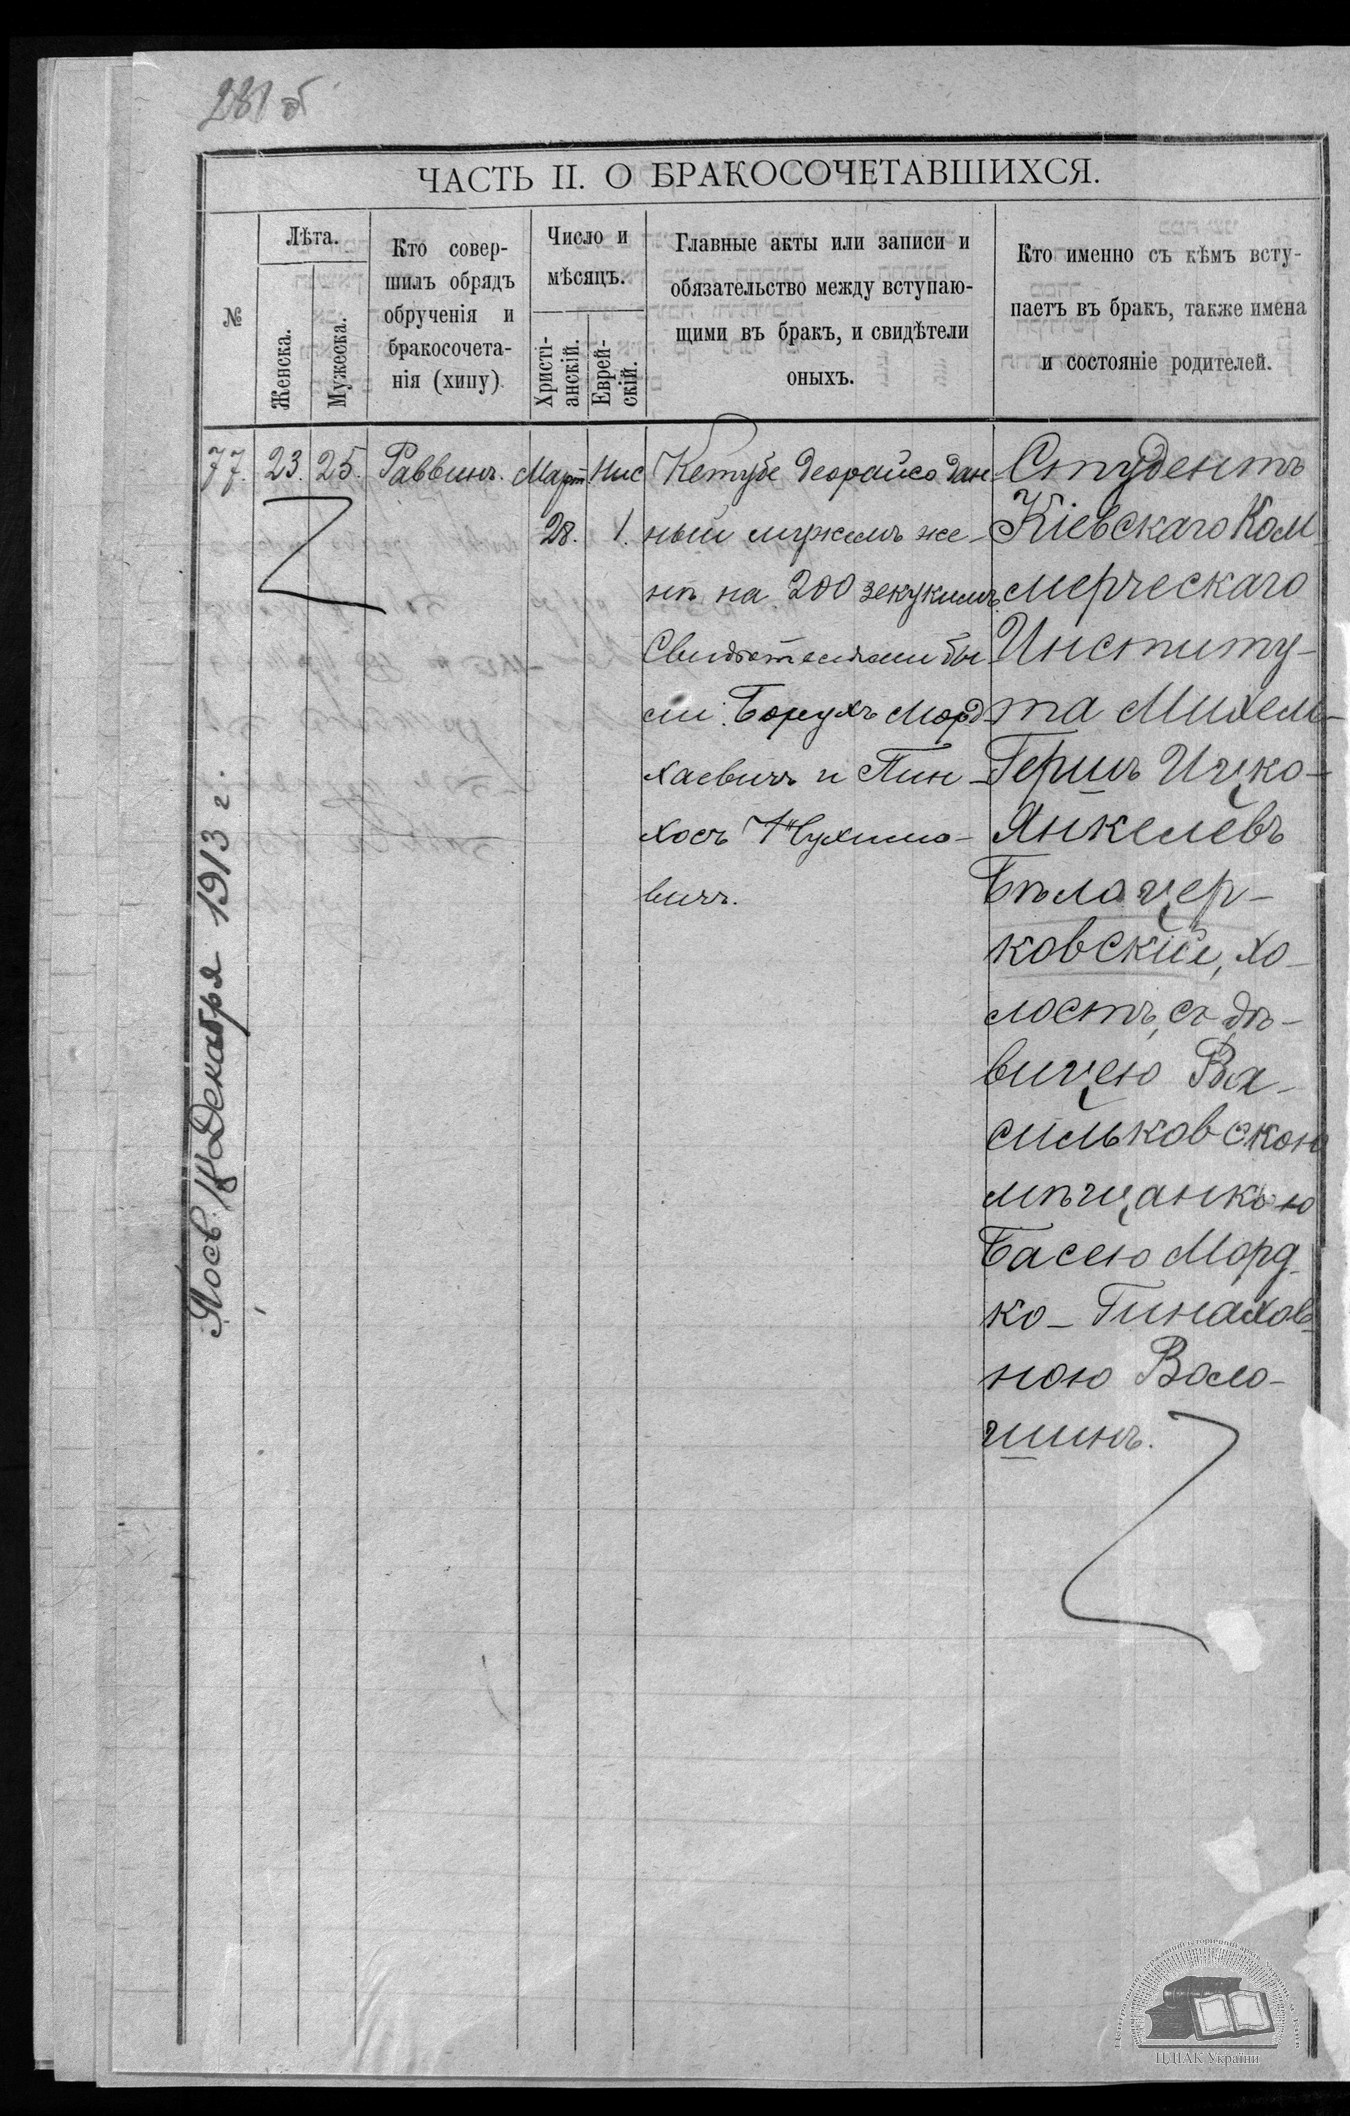 281 об
ЧАСТЬ II. О БРАКОСОЧЕТАВШИХСЯ.
№
Лѣта.
Женска.
Мужеска.
Кто совер-
шилъ обрядъ
обрученія и
бракосочета-
нія (хипу)
Число и
мѣсяцъ.
Христі-
анскій.
Еврей-
скій.
Главные акты или записи и
обязательство между вступаю-
щими въ бракъ, и свидѣтели
оныхъ.
Кто именно съ кѣмъ всту-
паетъ въ бракъ, также имена
и состояніе родителей.
77.
23.
25.
Раввинъ.
Март.
28.
Нис
1.
Кетубе деорайсо дан-
ный мужемъ же-
нѣ на 200 зекукимъ.
Свидѣтелями бы
ли: Борухъ Морд
хаевичъ и Пин-
хосъ Нухимо-
вичъ.
Студентъ
Кіевскаго Ком-
мерческаго
Институ-
та Михель-
Гершъ Ицко-
Янкелевъ
Бѣлацер-
ковскій, хо-
лостъ, съ дѣ-
вицею Ва-
сильковскою
мѣщанкою
Басею Морд-
ко-Пинахов-
ною Воло-
шинъ.
Декабря 1913 г.
ЦДІАК України